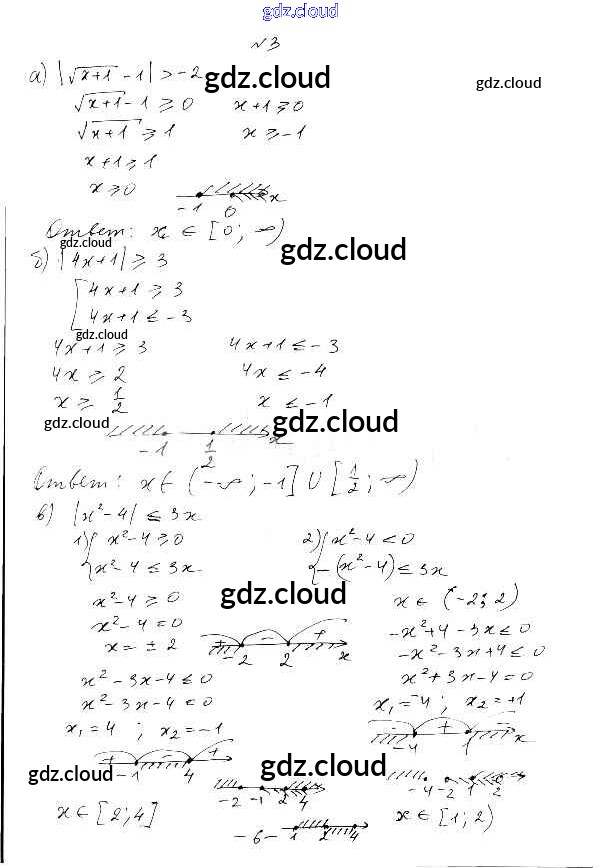 gdz.cloud
№3
а) |√x+1 - 1| > -2
gdz.cloud
gdz.cloud
√x+1 - 1 ⩾ 0    x+1 ⩾ 0
√x+1 ⩾ 1    x ⩾ -1
x+1 ⩾ 1
x ⩾ 0    -1 0 x
Ответ: x ∈ [0; ∞)
gdz.cloud
gdz.cloud
б) |4x+1| ⩾ 3
[ 4x+1 ⩾ 3
4x+1 ≤ -3
gdz.cloud
4x+1 ⩾ 3    4x+1 ≤ -3
4x ⩾ 2    4x ≤ -4
x ⩾ 1/2    x ≤ -1
gdz.cloud
gdz.cloud
-1 1/2 x
Ответ: x ∈ (-∞; -1] ∪ [1/2; ∞)
в) |x²-4| ≤ 3x
1) { x²-4 ⩾ 0    2) { x²-4 < 0
x²-4 ≤ 3x    -(x²-4) ≤ 3x
gdz.cloud
gdz.cloud
x²-4 ⩾ 0    x ∈ (-2; 2)
x²-4 = 0    -x²+4-3x ≤ 0
x = ± 2    + -2 - 2 + x    -x²-3x+4 ≤ 0
x²-3x-4 ≤ 0    x²+3x-4 = 0
x²-3x-4 = 0    x₁=-4; x₂=+1
x₁=4; x₂=-1    - -4 + 1 - x
+ -1 - 4 +
gdz.cloud
gdz.cloud
gdz.cloud
-2 -1 2 4    -4 -2 1 2
x ∈ [2; 4]    x ∈ [1; 2)
-6- 1 2 4